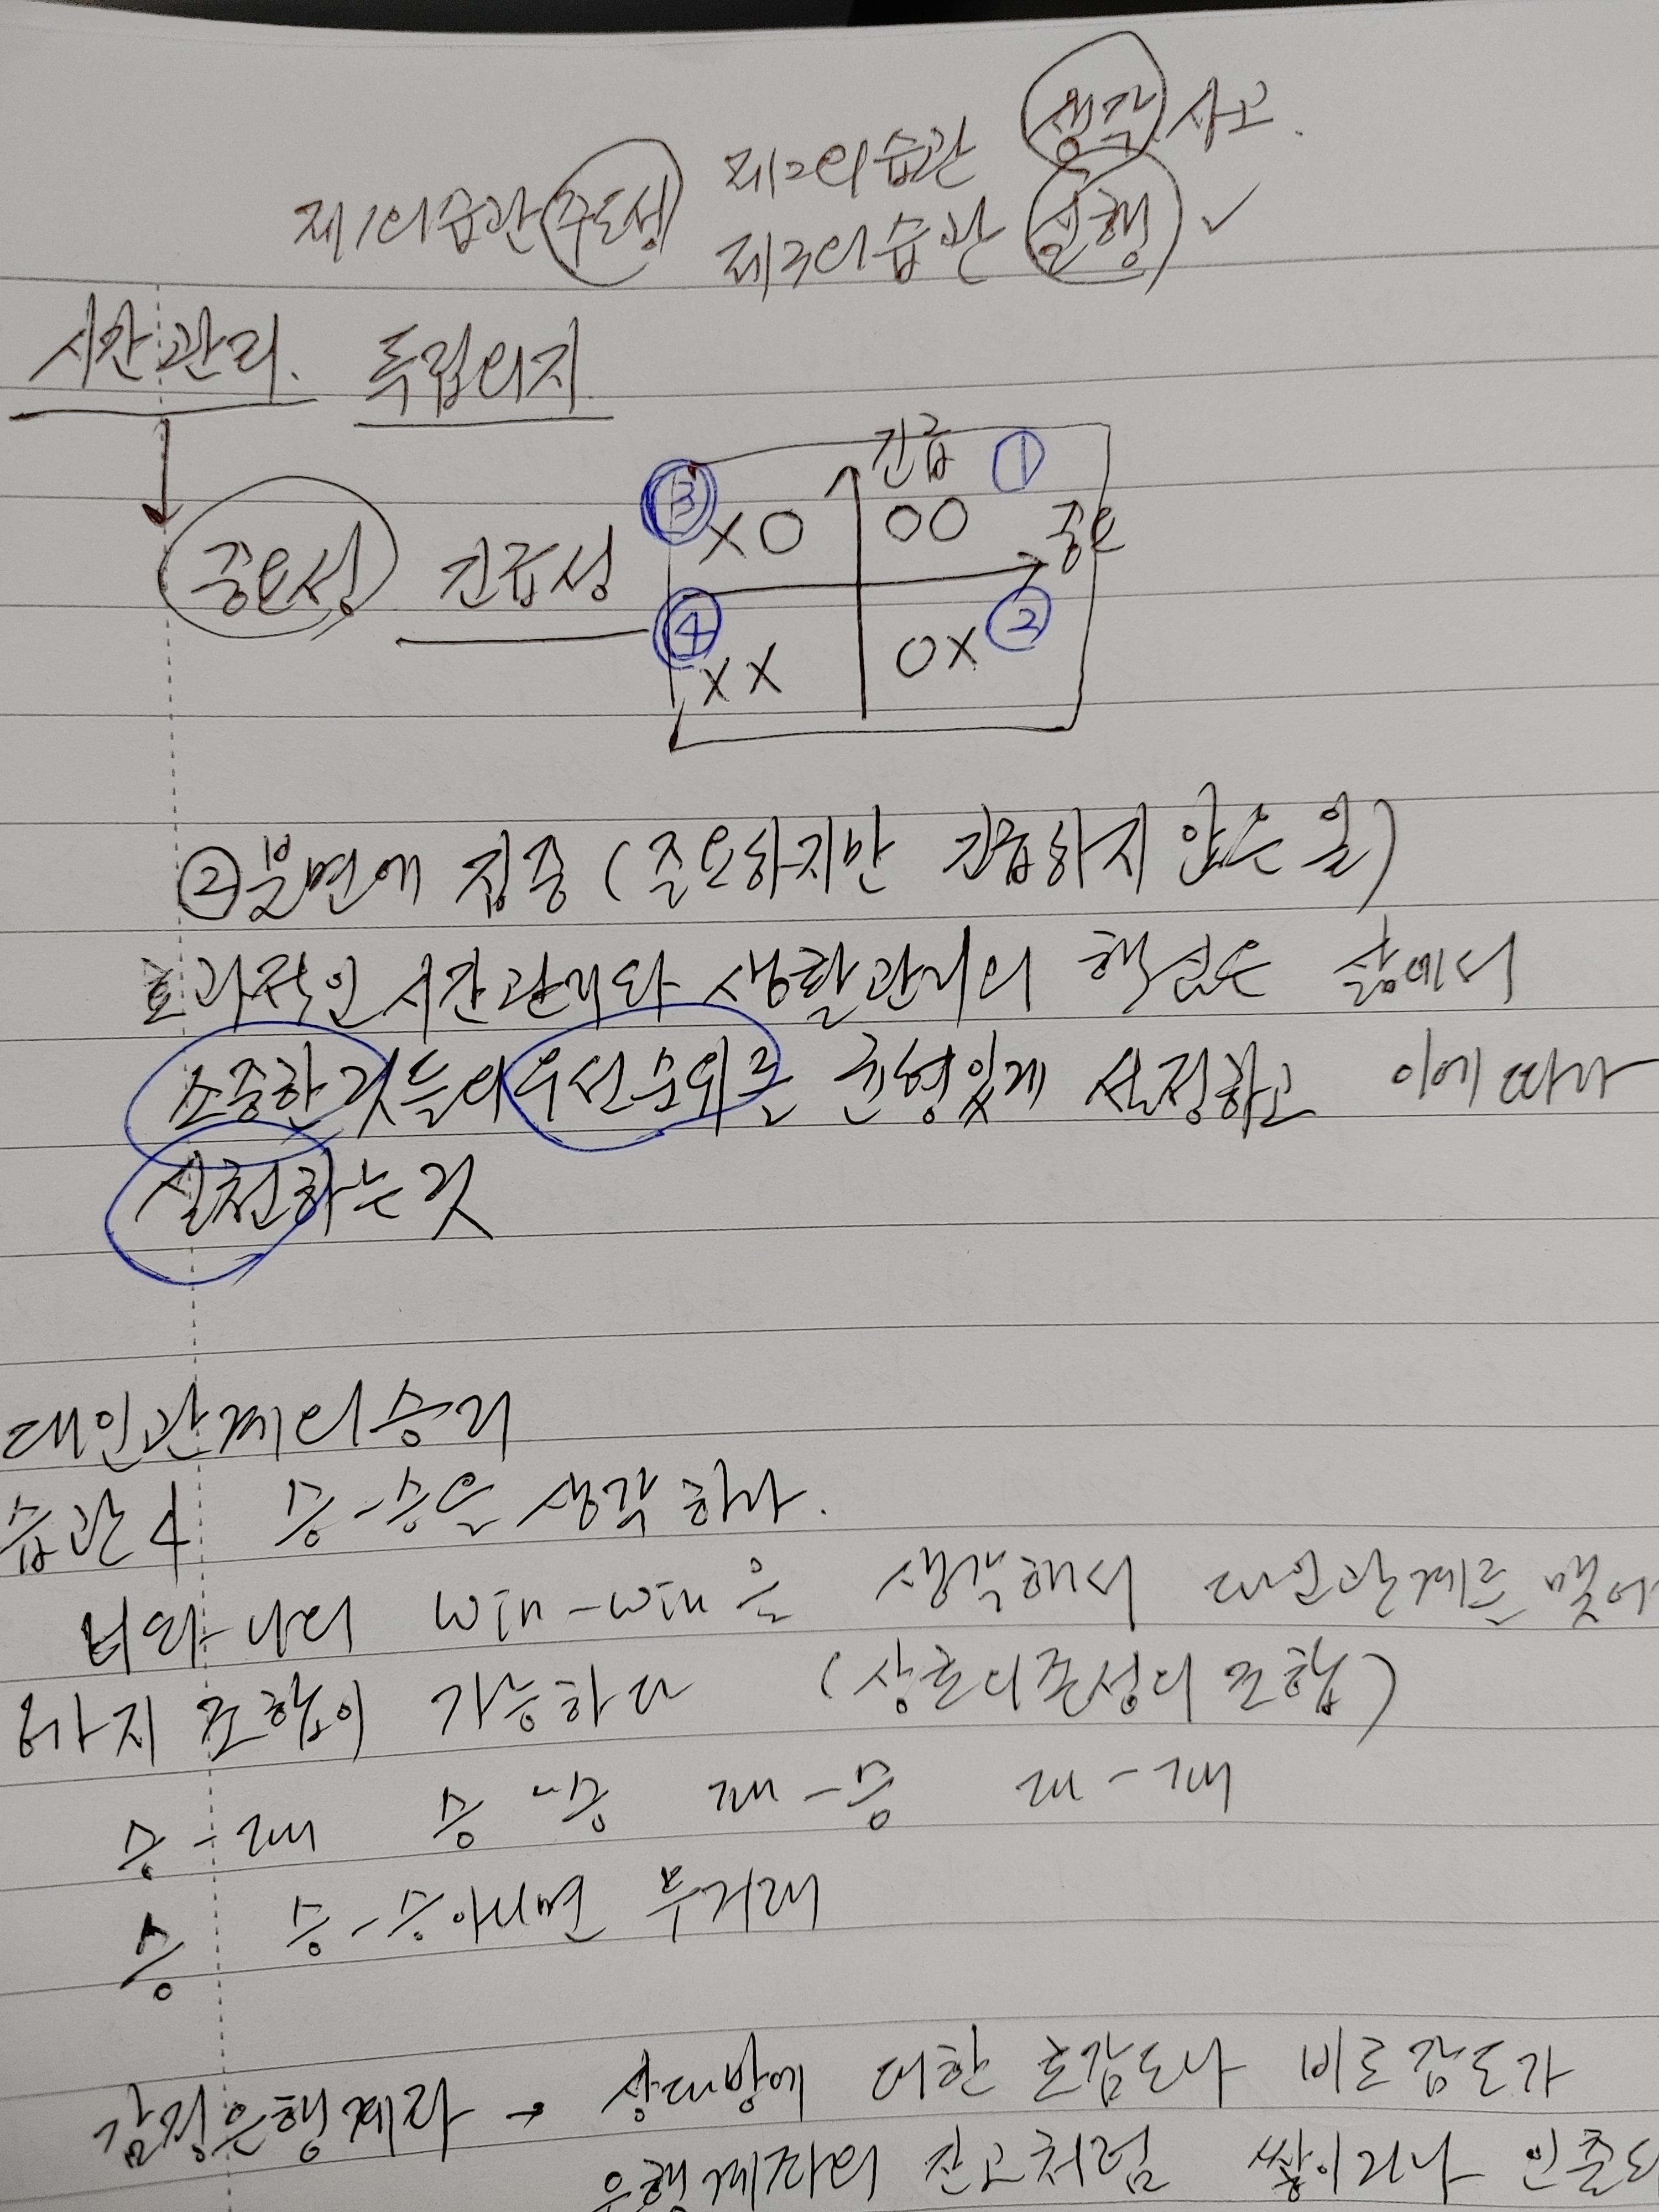 제2의 습관 생각 사고.
제1의 습관 주도성 제3의 습관 실행 ✓
시간관리. 독립의지
긴급 ①
③ XO OO 중요
중요성 긴급성
④ XX OX ②
②분면에 집중 (중요하지만 긴급하지 않은 일)
효과적인 시간관리와 생활관리의 핵심은 삶에서
소중한 것들의 우선순위를 균형있게 설정하고 이에 따라
실천하는 것
대인관계의 승리
습관 4 승-승을 생각하라.
너와 나의 win-win을 생각해서 대인관계를 맺어
6가지 조합이 가능하다 (상호의존성의 조합)
승-패 승-승 패-승 패-패
승 승-승 아니면 무거래
감정은행계좌 → 상대방에 대한 호감도나 비호감도가
은행계좌의 잔고처럼 쌓이거나 인출되